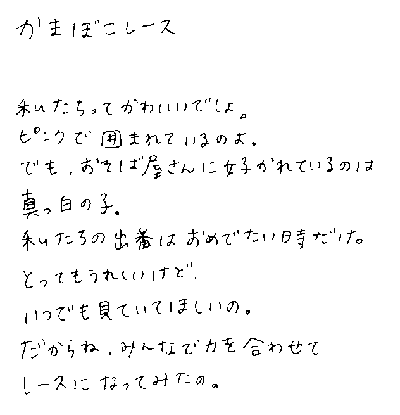 かまぼこレース
私たちってかわいいでしょ。
ピンクで囲まれているのよ。
でも、おそば屋さんに好かれているのは
真っ白の子。
私たちの出番はおめでたい時だけ。
とってもうれしいけど、
いつでも見ていてほしいの。
だからね、みんなで力を合わせて
レースになってみたの。